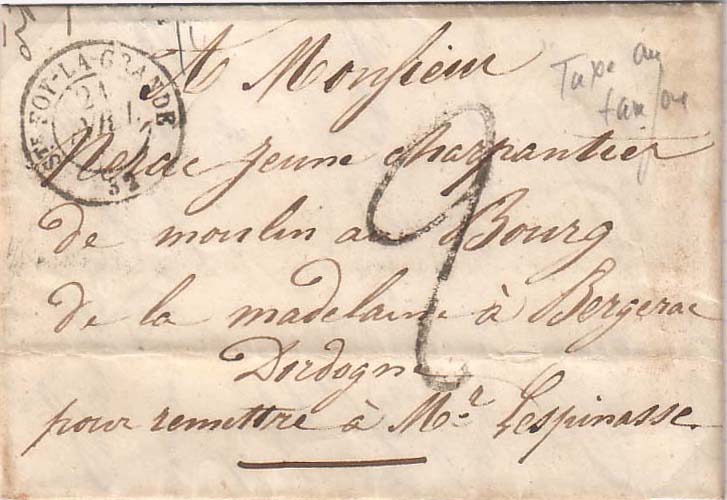 Ste FOY-LA-GRANDE
21
AVRIL
(32)
A Monsieur
Nerac jeune charpantier
de moulin au Bourg
de la madelaine à Bergerac
Dordogne
pour remettre à Mr. Lespinasse
2
Taxe au